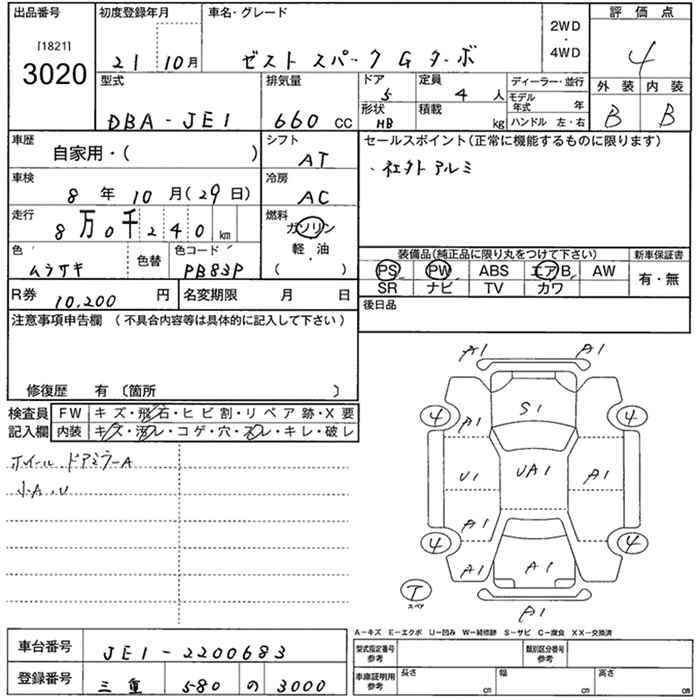 出品番号
[1821]
3020
初度登録年月
21 10月
車名・グレード
ゼスト スパーク G ターボ
2WD
・
4WD
評価点
4
外装 内装
B B
型式
DBA-JE1
排気量
660 CC
ドア
5
定員
4 人
形状
HB
積載
kg
ディーラー・並行
モデル年式 年
ハンドル 左・右
車歴
自家用・( )
シフト
AT
車検
8 年 10 月(29日)
冷房
AC
走行
8万0千240 km
燃料
ガソリン
軽・油
・
( )
色
ムラサキ
色替
色コード
PB83P
R券
10,200 円
名変期限 月 日
セールスポイント(正常に機能するものに限ります)
・社外アルミ
装備品(純正品に限り丸をつけて下さい)
PS PW ABS エアB AW
SR ナビ TV カワ
新車保証書
有・無
後日品
注意事項申告欄 (不具合内容等は具体的に記入して下さい)
修復歴 有 〔箇所 〕
検査員記入欄
FW キズ・飛石・ヒビ割・リペア跡・X要
内装 キズ・汚レ・コゲ・穴・スレ・キレ・破レ
ホイール ドアミラーA
小A,U
A1 A1
4 A1 S1 4
U1 UA1 A1
A1
4 A1 A1 4
T
スペア
A1
A-キズ E-エクボ U-凹み W-補修跡 S-サビ C-腐食 XX-交換済
車台番号
JE1-2200683
登録番号
三重 580 の 3000
型式指定番号
参考
類別区分番号
参考
車庫証明用
参考
長さ cm
幅 cm
高さ cm